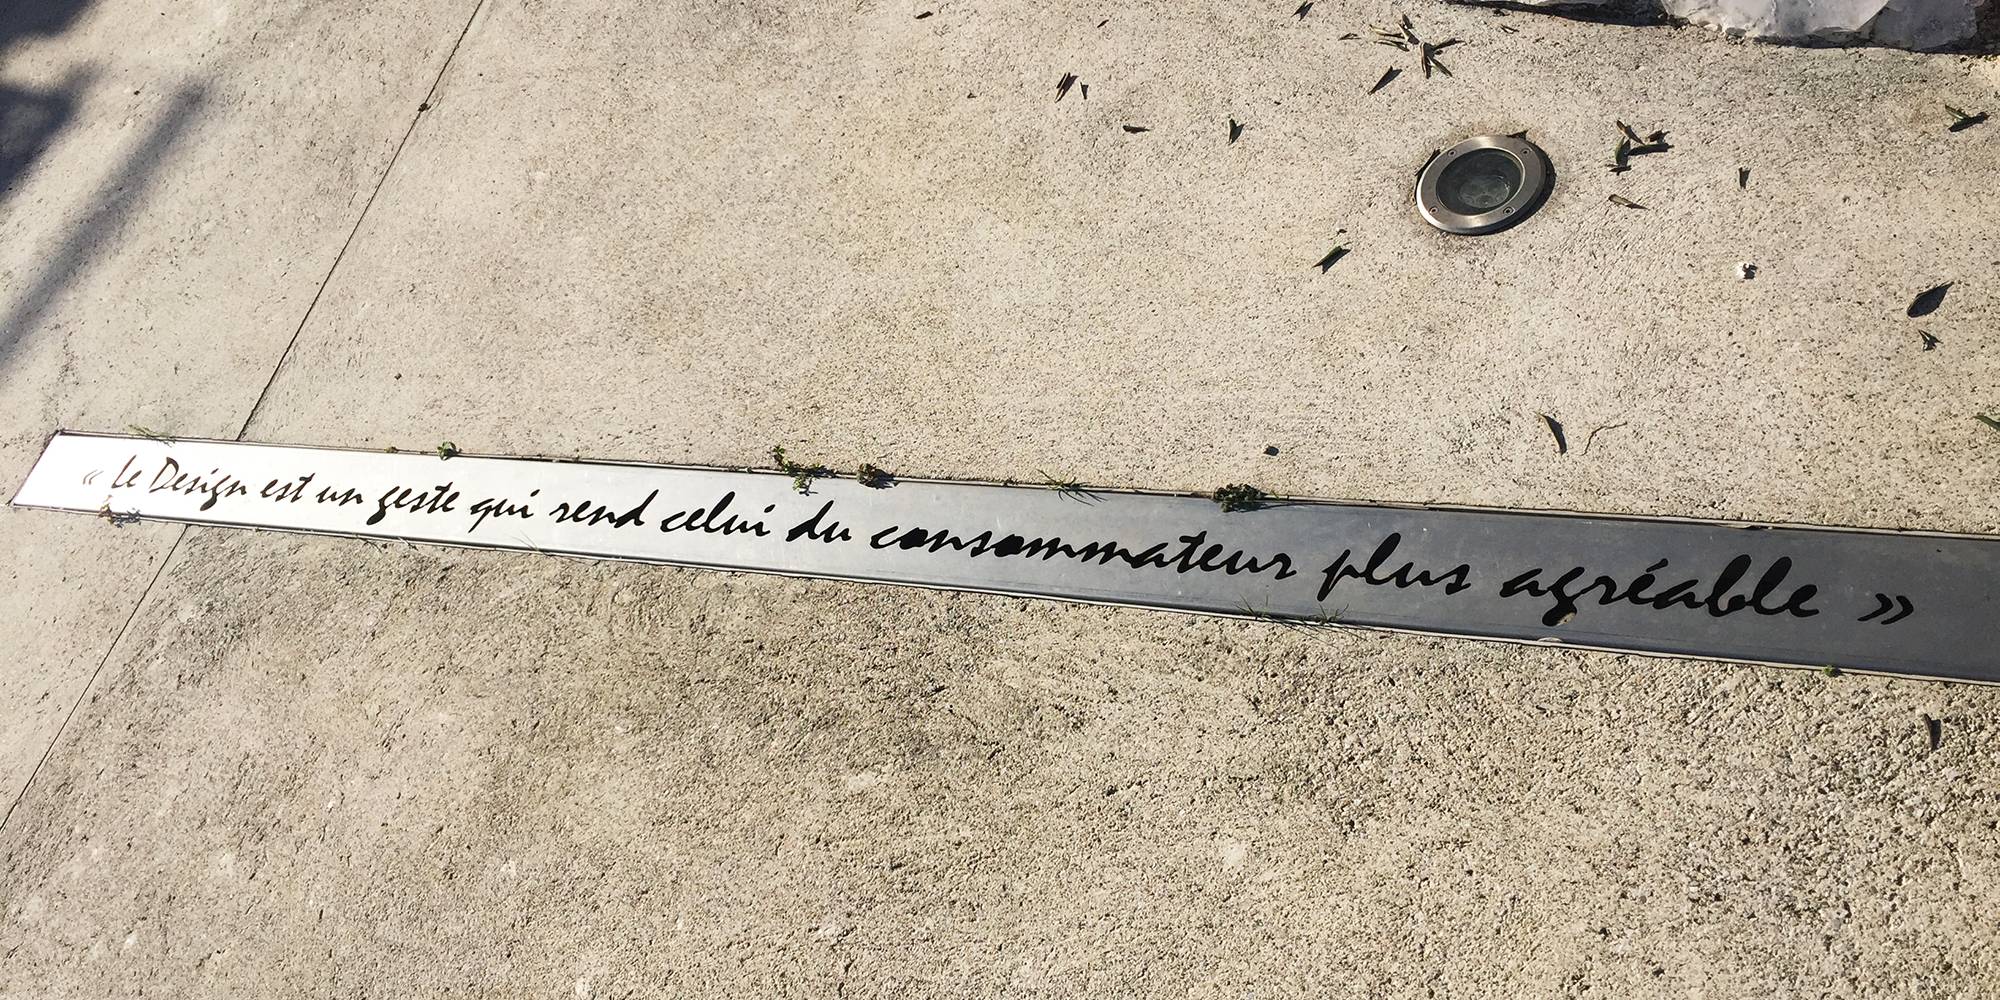 « Le Design est un geste qui rend celui du consommateur plus agréable »